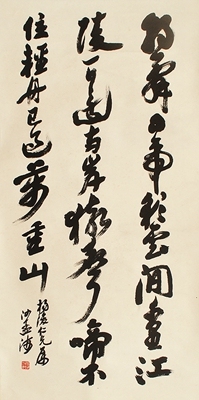 朝辭白帝彩雲間千里江
陵一日還兩岸猿聲啼不
住輕舟已過萬重山
仁兄属
沙孟海